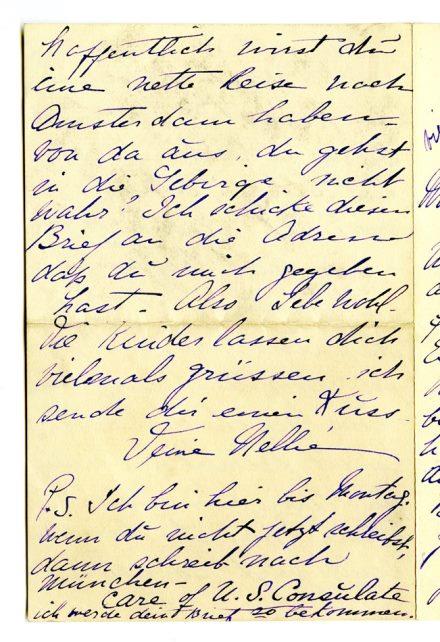 hoffentlich wirst du
eine nette Reise nach
Amsterdam haben -
von da aus, du gehst
in die Gebirge, nicht
wahr? Ich schicke diesen
Brief an die Adresse
daß du mich gegeben
hast - Also Lebe wohl -
Die Kinder lassen dich
vielmals grüssen, ich
sende dir einen Kuss -
Deine Nellie
P.S. Ich bin hier bis Montag.
wenn du nicht jetzt schreibst,
dann schreib nach
München -
care of U.S. Consulate
ich werde deine Brief so bekommen.